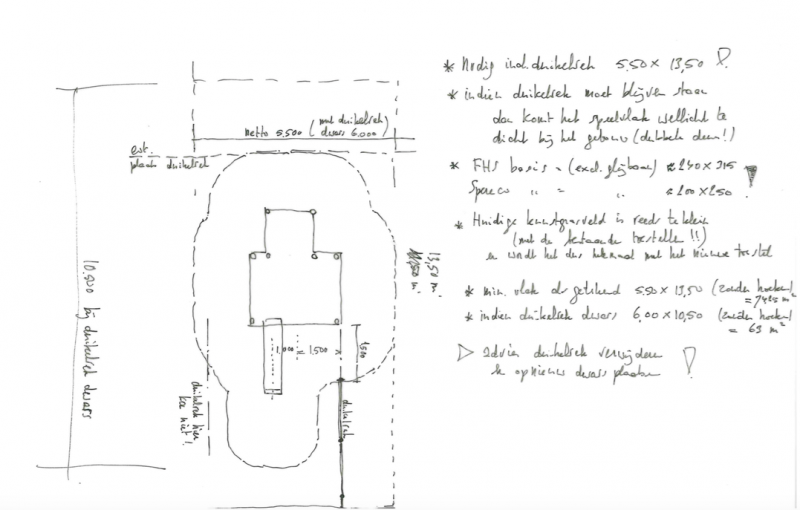 netto 5.500 (met duikelrek dwars 6.000)
evt.
plaats duikelrek
10.500 bij duikelrek dwars
13,50 m.
1.000 = 1.500
1500
duikelrek hier
kan niet!
duikelrek
* Nodig incl. duikelrek 5.50 x 13,50 !
* indien duikelrek moet blijven staan
dan komt het speelvlak wellicht te
dicht bij het gebouw (dubbele deur!)
* FHS basis = (excl. glijbaan) ≈ 240 x 315
Speeco " = " ≈ 200 x 250 !
* Huidige kunstgrasveld is reeds te klein
(met de bestaande toestellen !!)
en wordt het dus helemaal met het nieuwe toestel
* min. vlak als getekend 5.50 x 13,50 (zonder hoeken!
= 74,25 m²
* indien duikelrek dwars 6,00 x 10,50 (zonder hoeken!
= 63 m²
▷ advies duikelrek verwijderen
en opnieuw dwars plaatsen !